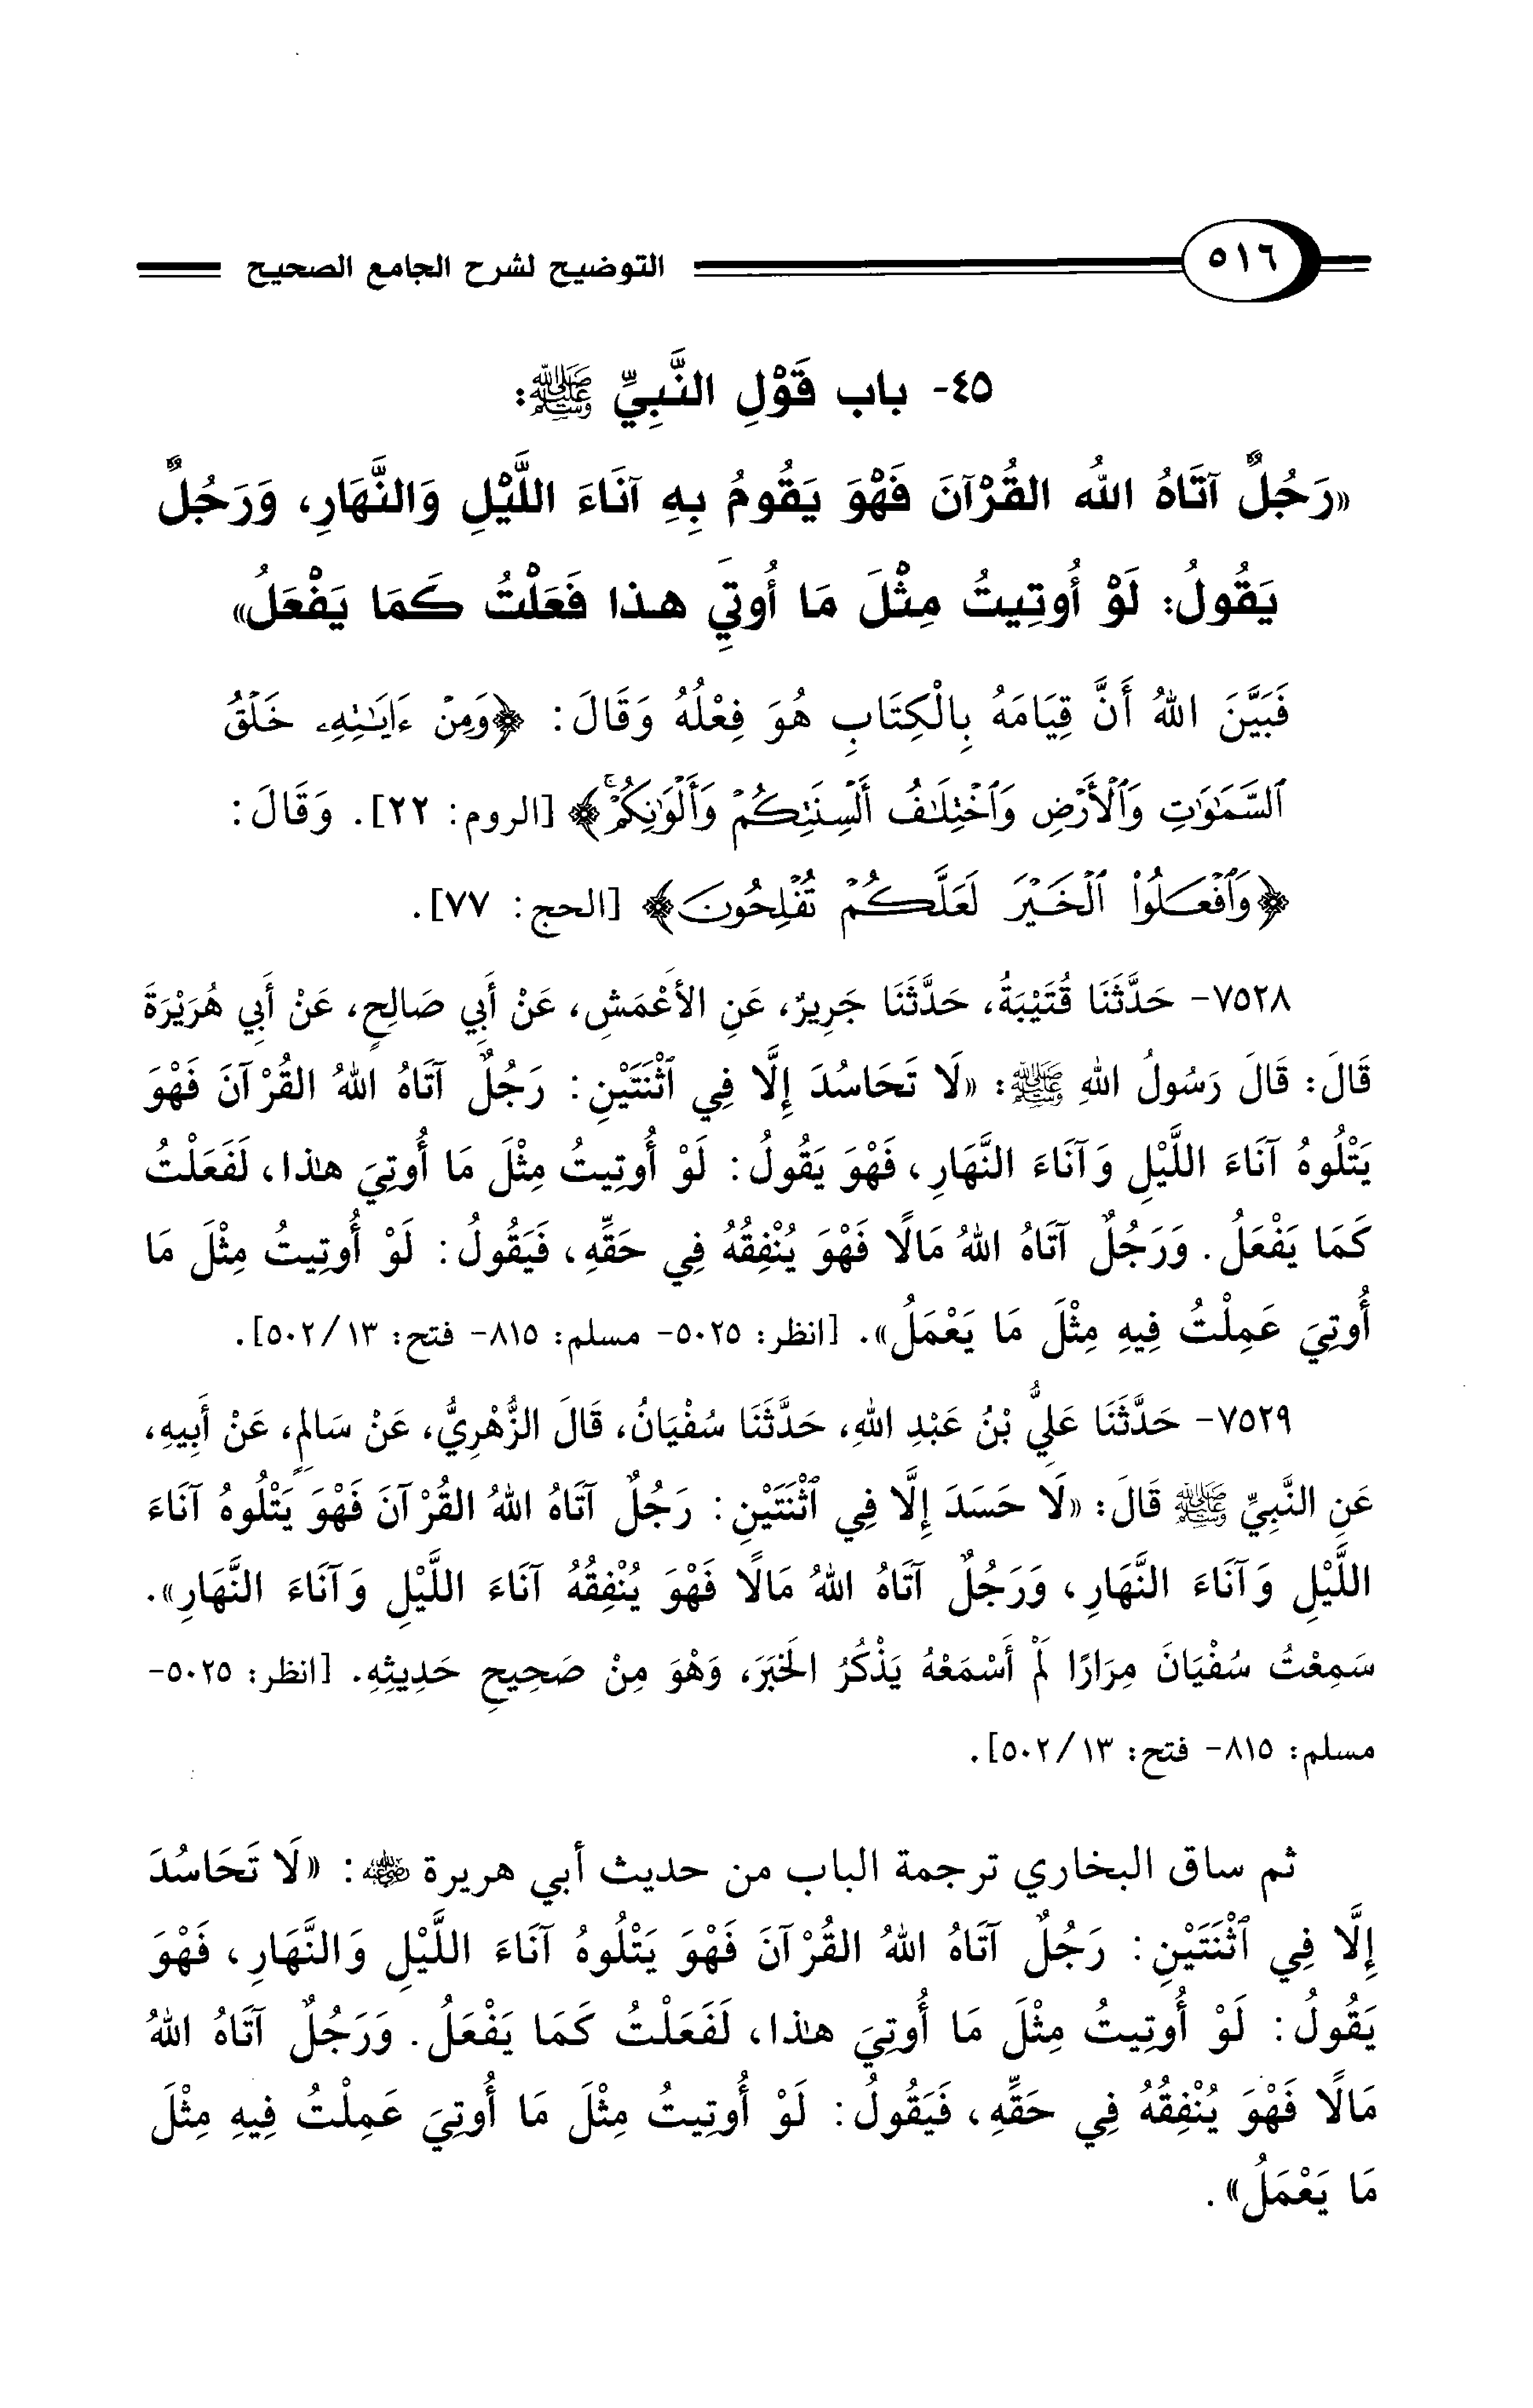 ٥١٦ التوضيح لشرح الجامع الصحيح
٤٥- باب قَوْلِ النَّبِيِّ ﷺ:
«رَجُلٌ آتَاهُ الله القُرْآنَ فَهْوَ يَقُومُ بِهِ آنَاءَ اللَّيْلِ وَالنَّهَارِ، وَرَجُلٌ
يَقُولُ: لَوْ أُوتِيتُ مِثْلَ مَا أُوتِيَ هذا فَعَلْتُ كَمَا يَفْعَلُ»
فَبَيَّنَ اللهُ أَنَّ قِيَامَهُ بِالْكِتَابِ هُوَ فِعْلُهُ وَقَالَ: ﴿وَمِنْ ءَايَٰتِهِۦ خَلْقُ
ٱلسَّمَٰوَٰتِ وَٱلْأَرْضِ وَٱخْتِلَٰفُ أَلْسِنَتِكُمْ وَأَلْوَٰنِكُمْ ۚ﴾ [الروم: ٢٢]. وَقَالَ:
﴿وَٱفْعَلُوا۟ ٱلْخَيْرَ لَعَلَّكُمْ تُفْلِحُونَ﴾ [الحج: ٧٧].
٧٥٢٨- حَدَّثَنَا قُتَيْبَةُ، حَدَّثَنَا جَرِيرٌ، عَنِ الأَعْمَشِ، عَنْ أَبِي صَالِحٍ، عَنْ أَبِي هُرَيْرَةَ
قَالَ: قَالَ رَسُولُ اللهِ ﷺ: «لَا تَحَاسُدَ إِلَّا فِي ٱثْنَتَيْنِ: رَجُلٌ آتَاهُ اللهُ القُرْآنَ فَهْوَ
يَتْلُوهُ آنَاءَ اللَّيْلِ وَآنَاءَ النَّهَارِ، فَهْوَ يَقُولُ: لَوْ أُوتِيتُ مِثْلَ مَا أُوتِيَ هٰذا، لَفَعَلْتُ
كَمَا يَفْعَلُ. وَرَجُلٌ آتَاهُ اللهُ مَالًا فَهْوَ يُنْفِقُهُ فِي حَقِّهِ، فَيَقُولُ: لَوْ أُوتِيتُ مِثْلَ مَا
أُوتِيَ عَمِلْتُ فِيهِ مِثْلَ مَا يَعْمَلُ». [انظر: ٥٠٢٥- مسلم: ٨١٥- فتح: ١٣/ ٥٠٢].
٧٥٢٩- حَدَّثَنَا عَلِيُّ بْنُ عَبْدِ اللهِ، حَدَّثَنَا سُفْيَانُ، قَالَ الزُّهْرِيُّ، عَنْ سَالِمٍ، عَنْ أَبِيهِ،
عَنِ النَّبِيِّ ﷺ قَالَ: «لَا حَسَدَ إِلَّا فِي ٱثْنَتَيْنِ: رَجُلٌ آتَاهُ اللهُ القُرْآنَ فَهْوَ يَتْلُوهُ آنَاءَ
اللَّيْلِ وَآنَاءَ النَّهَارِ، وَرَجُلٌ آتَاهُ اللهُ مَالًا فَهْوَ يُنْفِقُهُ آنَاءَ اللَّيْلِ وَآنَاءَ النَّهَارِ».
سَمِعْتُ سُفْيَانَ مِرَارًا لَمْ أَسْمَعْهُ يَذْكُرُ الْخَبَرَ، وَهْوَ مِنْ صَحِيحِ حَدِيثِهِ. [انظر: ٥٠٢٥-
مسلم: ٨١٥- فتح: ١٣/ ٥٠٢].
ثم ساق البخاري ترجمة الباب من حديث أبي هريرة رضي الله عنه: «لَا تَحَاسُدَ
إِلَّا فِي ٱثْنَتَيْنِ: رَجُلٌ آتَاهُ اللهُ القُرْآنَ فَهْوَ يَتْلُوهُ آنَاءَ اللَّيْلِ وَالنَّهَارِ، فَهْوَ
يَقُولُ: لَوْ أُوتِيتُ مِثْلَ مَا أُوتِيَ هٰذا، لَفَعَلْتُ كَمَا يَفْعَلُ. وَرَجُلٌ آتَاهُ اللهُ
مَالًا فَهْوَ يُنْفِقُهُ فِي حَقِّهِ، فَيَقُولُ: لَوْ أُوتِيتُ مِثْلَ مَا أُوتِيَ عَمِلْتُ فِيهِ مِثْلَ
مَا يَعْمَلُ».